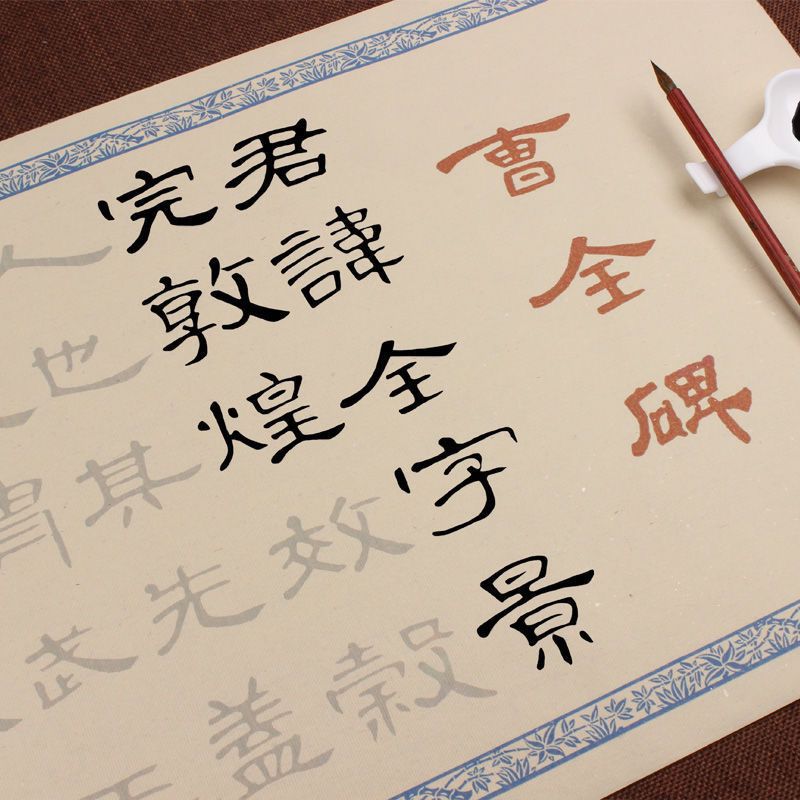 曹全碑
君諱全字景
完敦煌效穀
人也其先盖
胄武